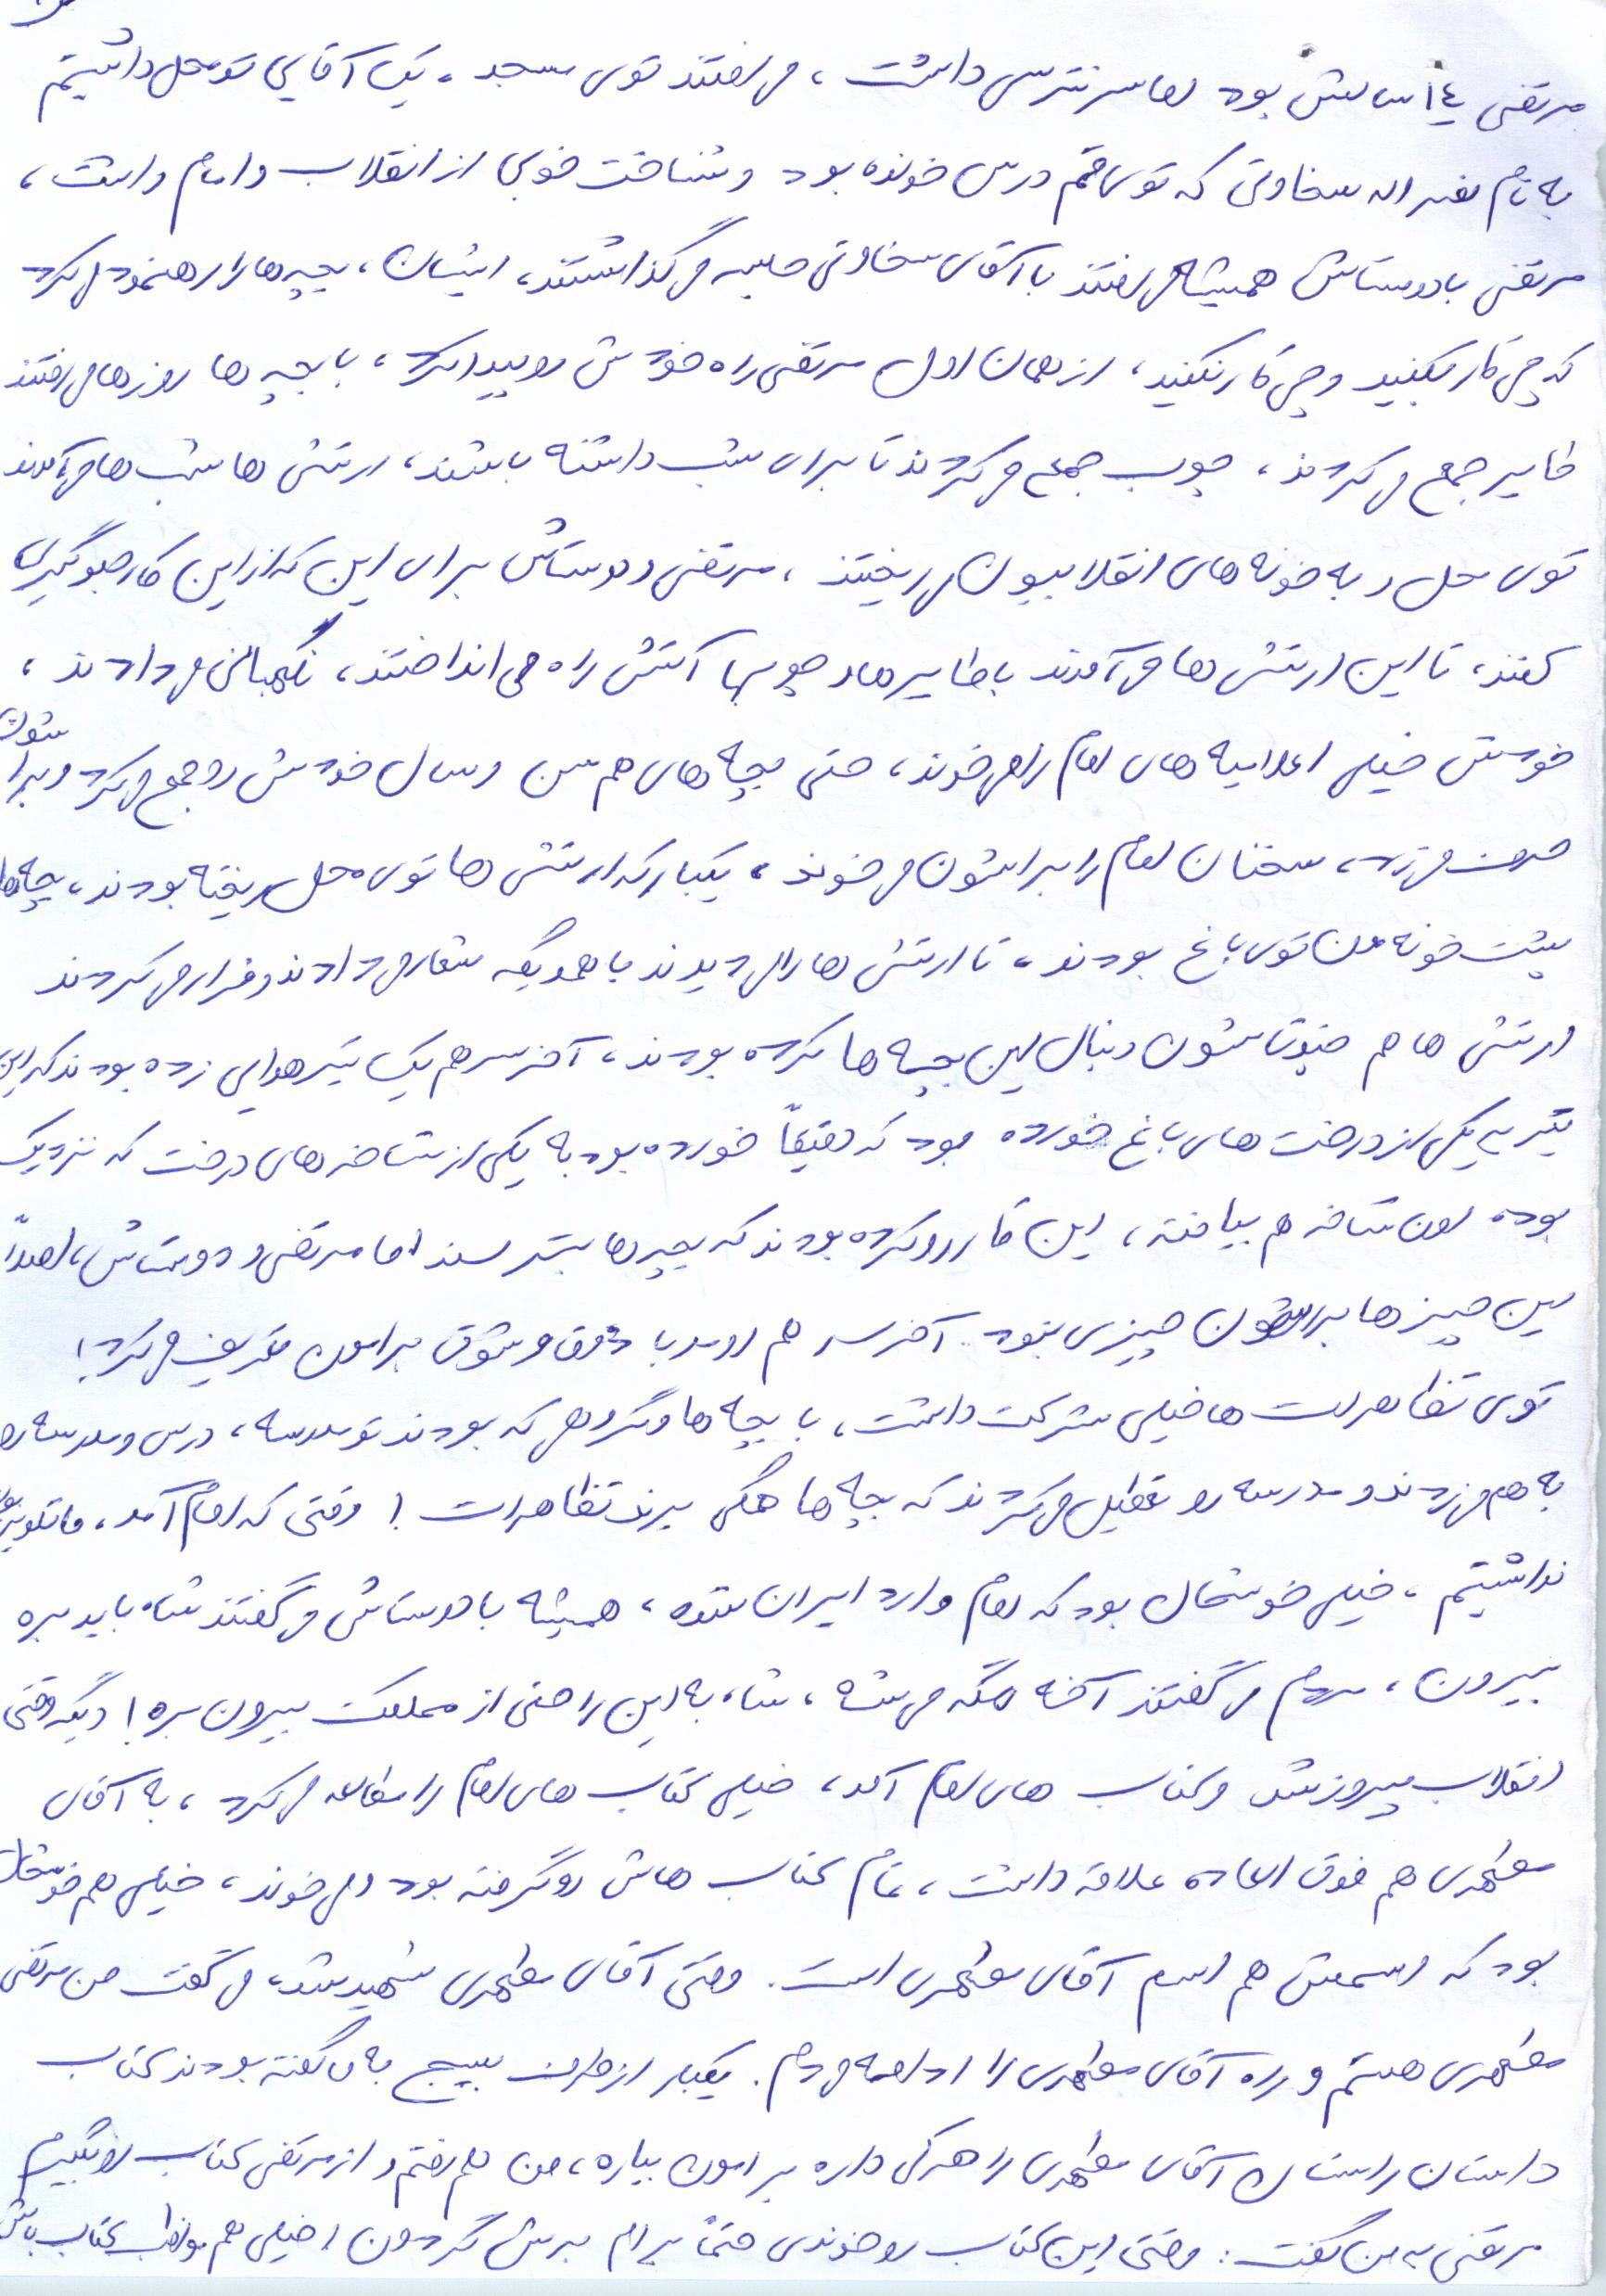 مرتضی ١٤ سالش بود اما سر نترسی داشت، می رفتند توی مسجد، یک آقایی تو محل داشتیم
به نام نصراله سخاوتی که توی قم درس خونده بود و شناخت خوبی از انقلاب و امام داشت،
مرتضی با دوستاش همیشه می رفتند با آقای سخاوتی جلسه می گذاشتند، ایشان، بچه ها را راهنمود می کرد
که چی کار بکنید و چی کار نکنید، از همان اول مرتضی راه خودش رو پیدا کرد، با بچه ها روزها می رفتند
طایر جمع می کردند، چوب جمع می کردند تا برای شب داشته باشند، ارتشی ها شب ها می آمدند
توی محل و به خونه های انقلابیون می ریختند، مرتضی و دوستاش برای این که از این کار جلوگیری
کنند، تا این ارتشی ها می آمدند با طایرها و چوبها آتش راه می انداختند، نگهبانی می دادند،
خودش خیلی اعلامیه های امام را می خوند، حتی بچه های هم سن و سال خودش رو جمع می کرد و براشون
حرف می زد، سخنان امام را براشون می خوند، یکبار که ارتشی ها توی محل ریخته بودند، بچه ها
پشت خونه من توی باغ بودند، تا ارتشی ها را می دیدند با همدیگه شعار می دادند و فرار می کردند
ارتشی ها هم دنبال این بچه ها کرده بودند، آخر سر هم یک تیر هوایی زده بودند که این
تیر به یکی از درخت های باغ خورده بود که دقیقاً خورده بود به یکی از شاخه های درخت که نزدیک
بوده اون شاخه هم بیافته، این کار رو کرده بودند که بچه ها بترسند اما مرتضی و دوستاش، اصلاً
این چیزها براشون چیزی نبود. آخر سر هم اومد با ذوق و شوق برامون تعریف می کرد!
توی تظاهرات ها خیلی شرکت داشت، با بچه ها و گروهی که بودند تو مدرسه، درس و مدرسه رو
به هم می زدند و مدرسه رو تعطیل می کردند که بچه ها همگی برند تظاهرات! وقتی که امام آمد، ما تلویزیون
نداشتیم، خیلی خوشحال بود که امام وارد ایران شده، همیشه با دوستاش می گفتند شاه باید بره
بیرون، مردم می گفتند آخه مگه می شه، شاه به این راحتی از مملکت بیرون بره! دیگه وقتی
انقلاب پیروز شد و کتاب های امام آمد، خیلی کتاب های امام را مطالعه می کرد، به آقای
مطهری هم فوق العاده علاقه داشت، تمام کتاب هاش رو گرفته بود و می خوند، خیلی هم خوشحال
بود که اسمش هم اسم آقای مطهری است. وقتی آقای مطهری شهید شد، می گفت من مرتضی
مطهری هستم و راه آقای مطهری را ادامه می دم. یکبار از طرف بسیج به من گفته بودند کتاب
داستان راستان آقای مطهری را هر کی داره برامون بیاره، من هم رفتم و از مرتضی کتاب رو بگیرم
مرتضی به من گفت: وقتی این کتاب رو خوندی حتماً برام برش گردون! خیلی هم مواظب کتاب باش